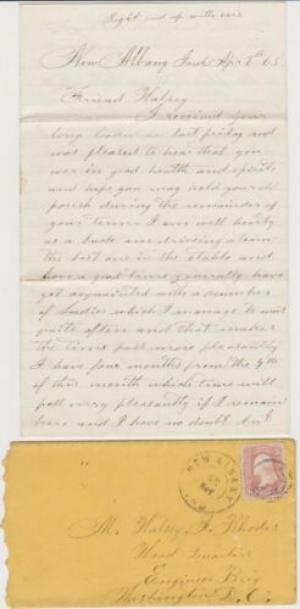 Right end up with care
New Albany Ind Apr 8th 65
Friend Halsey
I received your
long last friday and
was pleased to hear that you
wer in good health and spirits
and hope you may hold your own
during the remainder of
your time I am well hearty
as a buck am driving a team
the best one in the stable and
have a good time generally have
got acquainted with a number
of Ladies which I manage to visit
quite often and that makes
the time past more pleasantly
I have four months from the 9th
of this month which time will
pass very pleasantly if I remain
here and I have no doubt but
NEW ALBANY
Mr Halsey F. Rhodes
Head Quarters
Engineer Brig
Washington D. C.